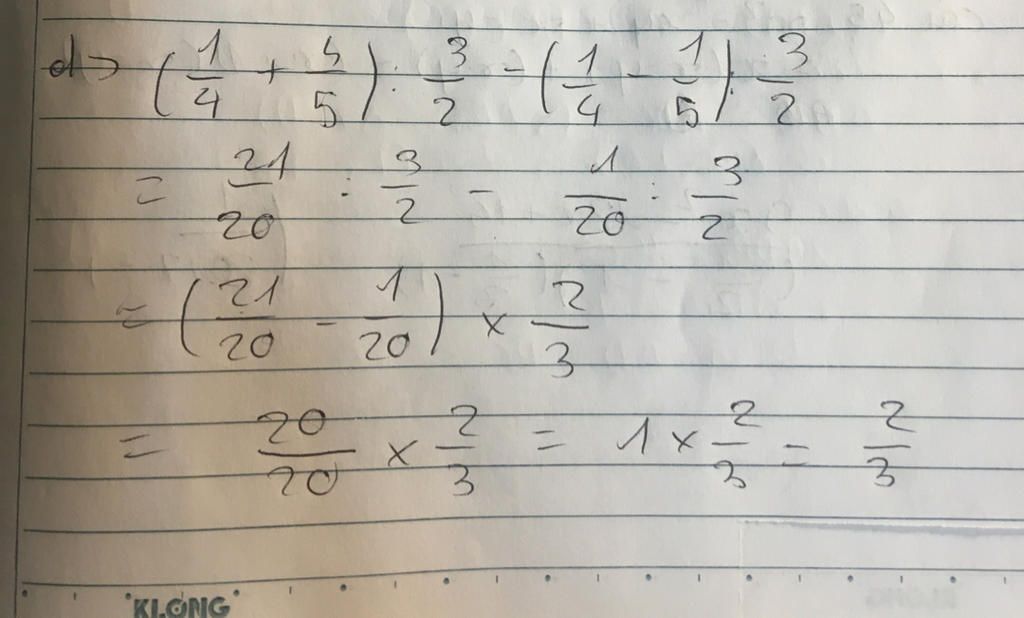 d> (1/4 + 4/5) : 3/2 - (1/4 - 1/5) : 3/2
= 21/20 : 3/2 - 1/20 : 3/2
= (21/20 - 1/20) × 2/3
= 20/20 × 2/3 = 1 × 2/3 = 2/3
KLONG